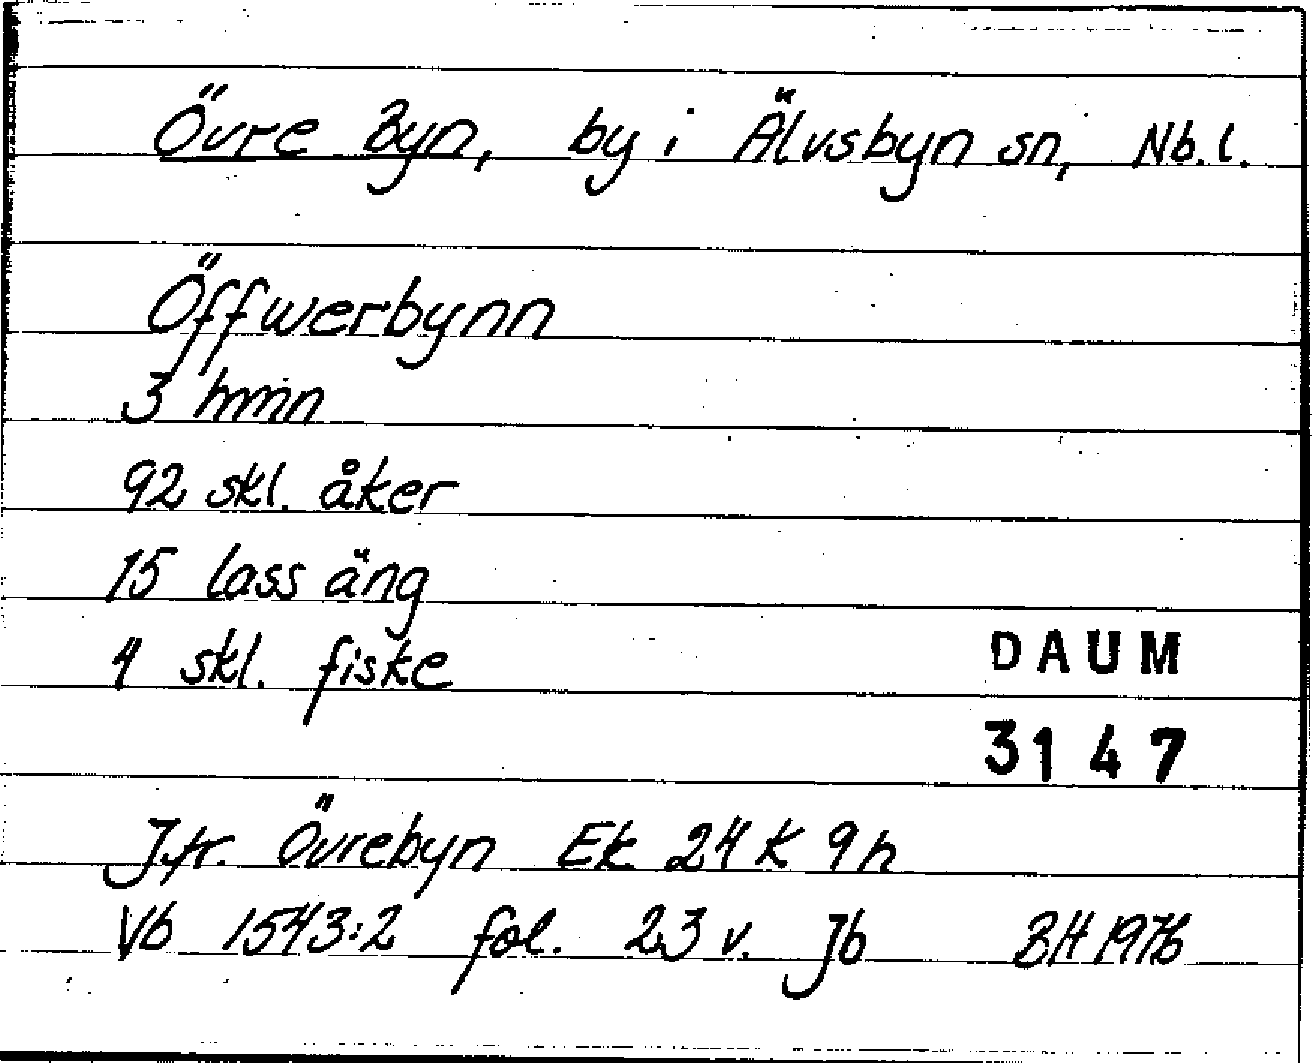 Övre Byn, by i Älvsbyn sn, Nb. l.
Öffwerbynn
3 hmn
92 skl. åker
15 lass äng
4 skl. fiske
DAUM
3147
Jfr. Övrebyn Ek 24 K 9 h
Vb 1543:2 fol. 23 v. Jb BH 1976